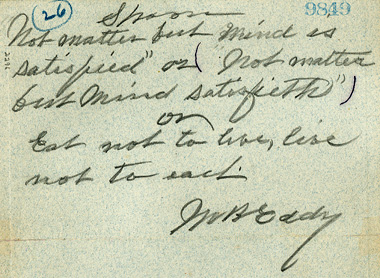 (26) Spoon 9849
Not matter but Mind is
satisfied" or ("Not matter
but Mind satisfieth")
or
Eat not to live, live
not to eat.
M B Eddy